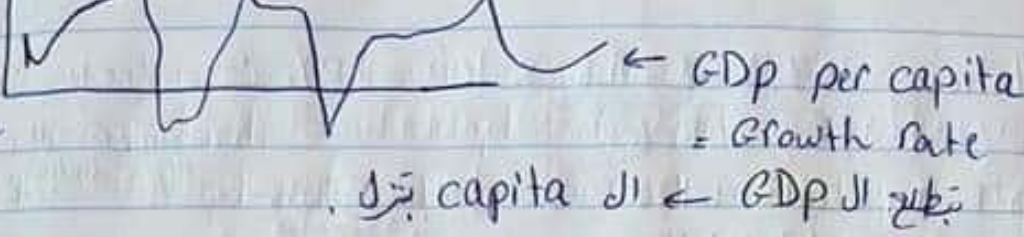 ← GDp per capita
= Growth rate
بتطلع ال GDp ← ال capita بتنزل .